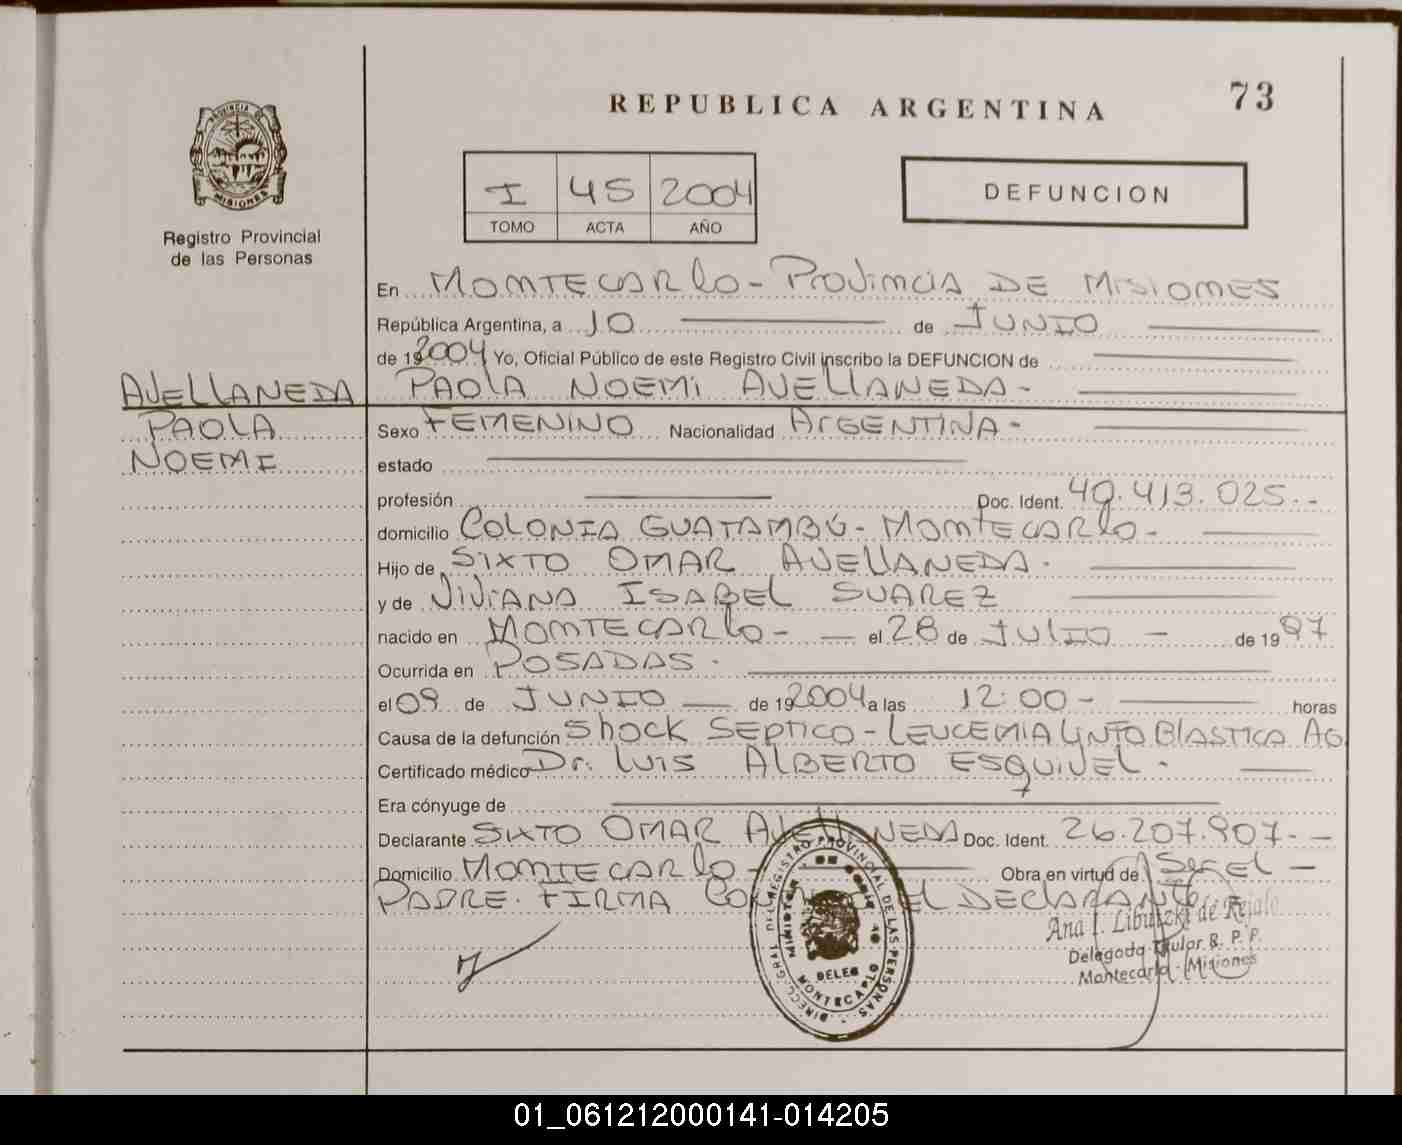 REPUBLICA ARGENTINA
73
PROVINCIA
MISIONES
Registro Provincial
de las Personas
I 45 2004
TOMO ACTA AÑO
DEFUNCION
En MONTECARLO - PROVINCIA DE MISIONES
República Argentina, a 10 de JUNIO
de 192004 Yo, Oficial Público de este Registro Civil inscribo la DEFUNCION de
AVELLANEDA PAOLA NOEMI AVELLANEDA -
PAOLA Sexo FEMENINO Nacionalidad ARGENTINA -
NOEMI
estado
profesión Doc. Ident. 40.413.025.-
domicilio COLONIA GUATAMBÚ - MONTECARLO -
Hijo de SIXTO OMAR AVELLANEDA.
y de VIVIANA ISABEL SUAREZ
nacido en MONTECARLO - el 28 de JULIO - de 1997
Ocurrida en POSADAS.
el 09 de JUNIO de 192004 a las 12:00 - horas
Causa de la defunción SHOCK SEPTICO - LEUCEMIA LINFOBLASTICA AG
Certificado médico Dr. LUIS ALBERTO ESQUIVEL.
Era cónyuge de
Declarante SIXTO OMAR AVELLANEDA Doc. Ident. 26.207.907.-
Domicilio MONTECARLO - Obra en virtud de SER EL -
PADRE. FIRMA EL DECLARANTE
DIRECC. GRAL. DEL REGISTRO PROVINCIAL DE LAS PERSONAS
DELEG
MONTECARLO
Ana I. Libutzki de
Delegada Titular R. P. P.
Montecarlo - Misiones
01_061212000141-014205